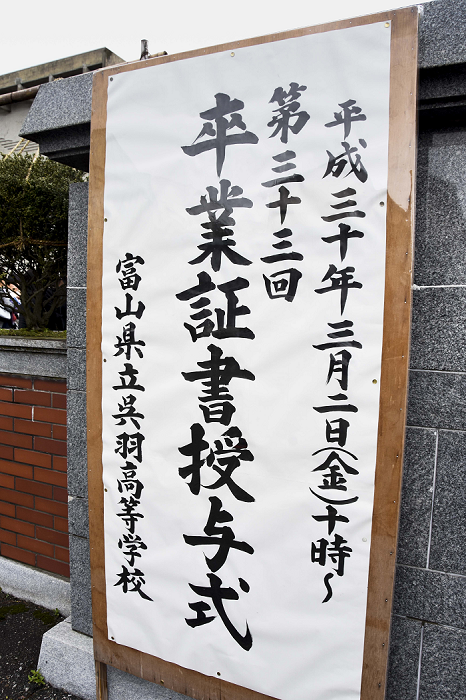 平成三十年三月二日(金)十時～
第三十三回
卒業証書授与式
富山県立呉羽高等学校